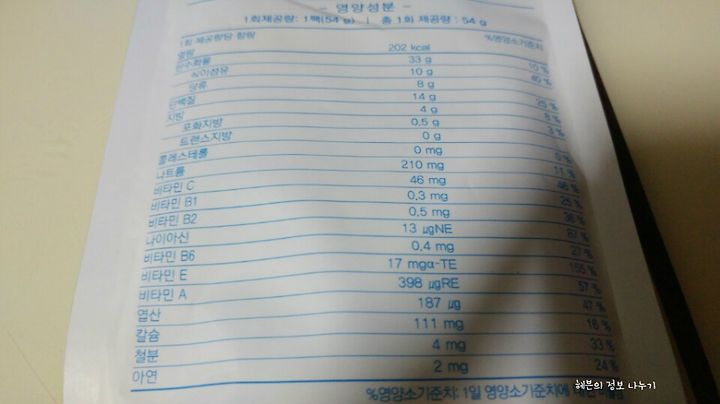 - 영양성분 -
1회제공량: 1팩(54 g) | 총 1회 제공량 : 54 g
1회 제공량당 함량 %영양소기준치
열량 202 kcal
탄수화물 33 g 10 %
식이섬유 10 g 40 %
당류 8 g
단백질 14 g 25 %
지방 4 g 8 %
포화지방 0.5 g 3 %
트랜스지방 0 g
콜레스테롤 0 mg 0 %
나트륨 210 mg 11 %
비타민 C 46 mg 46 %
비타민 B1 0.3 mg 25 %
비타민 B2 0.5 mg 36 %
나이아신 13 µgNE 87 %
비타민 B6 0.4 mg 27 %
비타민 E 17 mgα-TE 155 %
비타민 A 398 µgRE 57 %
엽산 187 µg 47 %
칼슘 111 mg 16 %
철분 4 mg 33 %
아연 2 mg 24 %
%영양소기준치: 1일 영양소기준치에 대한 비율
혜분의 정보 나누기